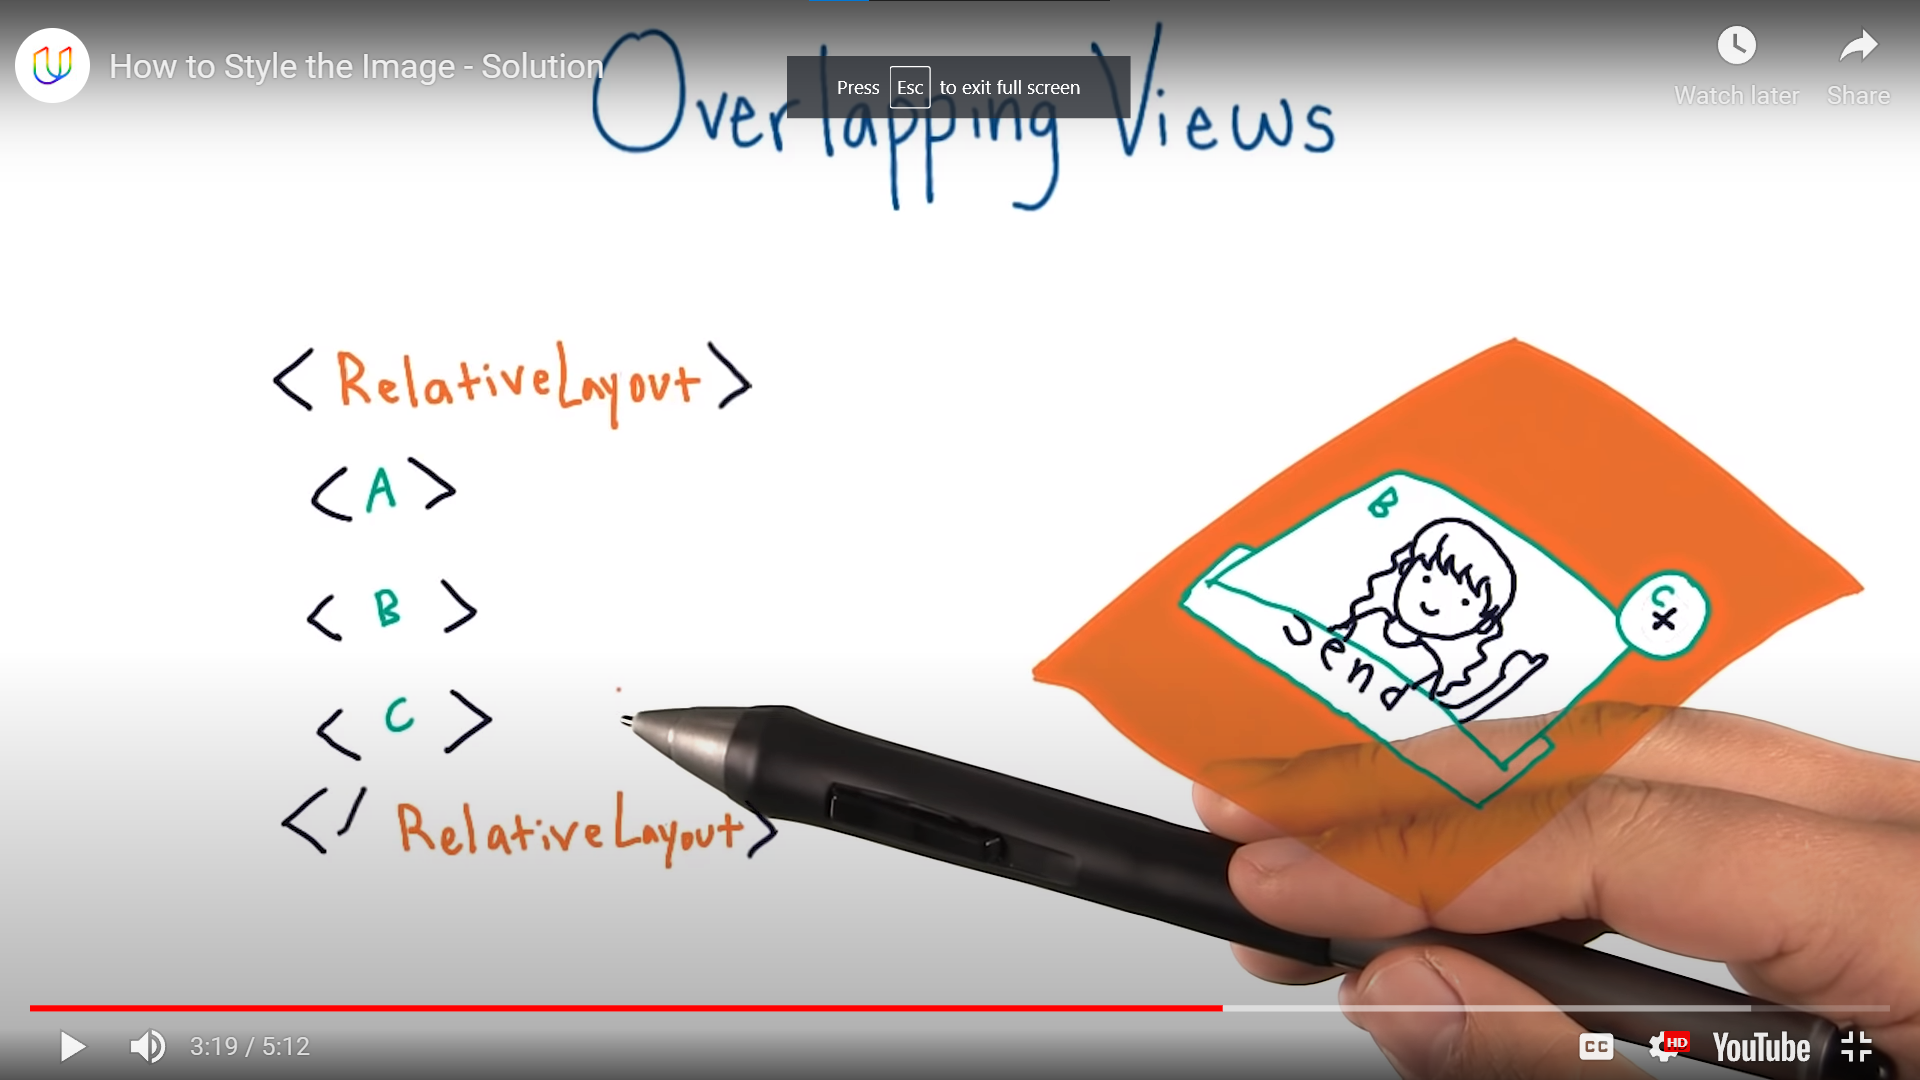 How to Style the Image - Solution
Press Esc to exit full screen
Watch later
Share
Overlapping Views
<RelativeLayout>
<A>
<B>
<C>
</RelativeLayout>
B
C
X
Send
3:19 / 5:12
CC
HD
YouTube